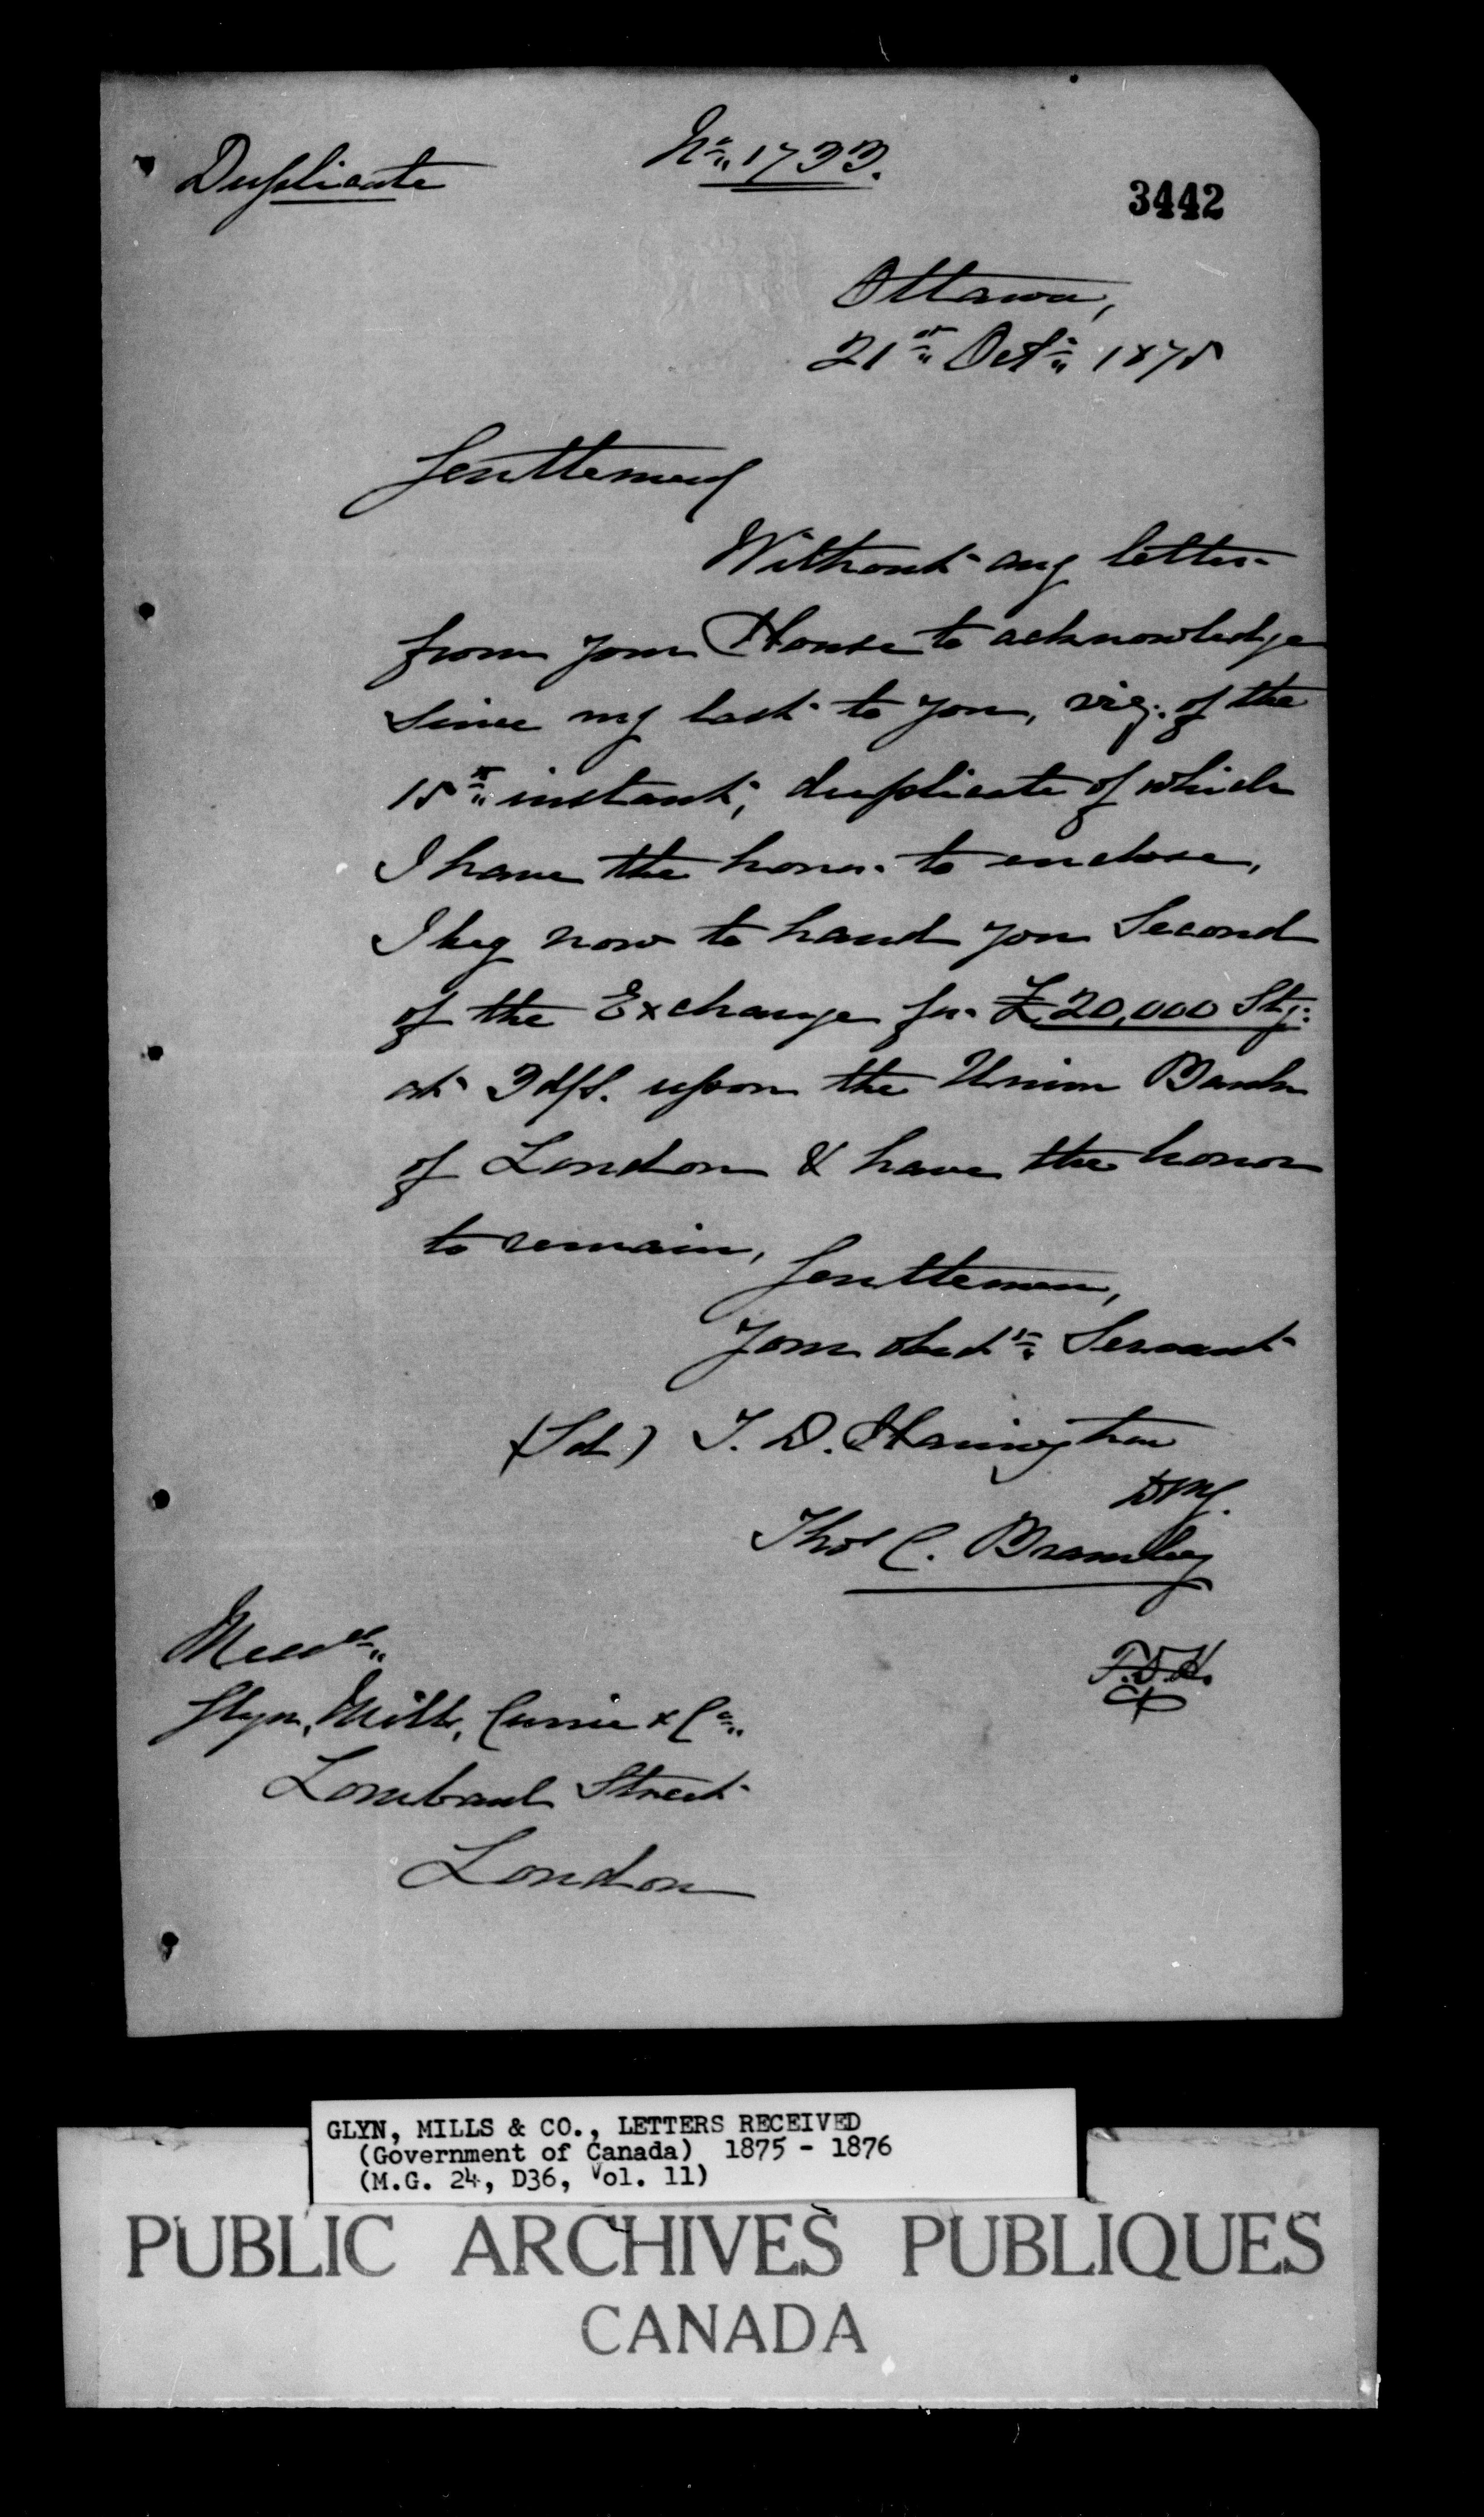 Duplicate
No. 1733.
3442
Ottawa,
21st Octr. 1875
Gentlemen
Without any letter
from your House to acknowledge
since my last to you, viz. of the
15th instant, duplicate of which
I have the honor to enclose,
I beg now to hand you Second
of the Exchange for £20,000 Stg:
at 3 d/s. upon the Union Bank
of London & have the honor
to remain,
Gentlemen,
Your obedt. Servant
(Sd.) T. D. Harington
DMG.
Thos C. Bramley
T.D.H.
Messrs.
Glyn, Mills, Currie & Co.
Lombard Street
London
GLYN, MILLS & CO., LETTERS RECEIVED
(Government of Canada) 1875 - 1876
(M.G. 24, D36, Vol. 11)
PUBLIC ARCHIVES PUBLIQUES
CANADA